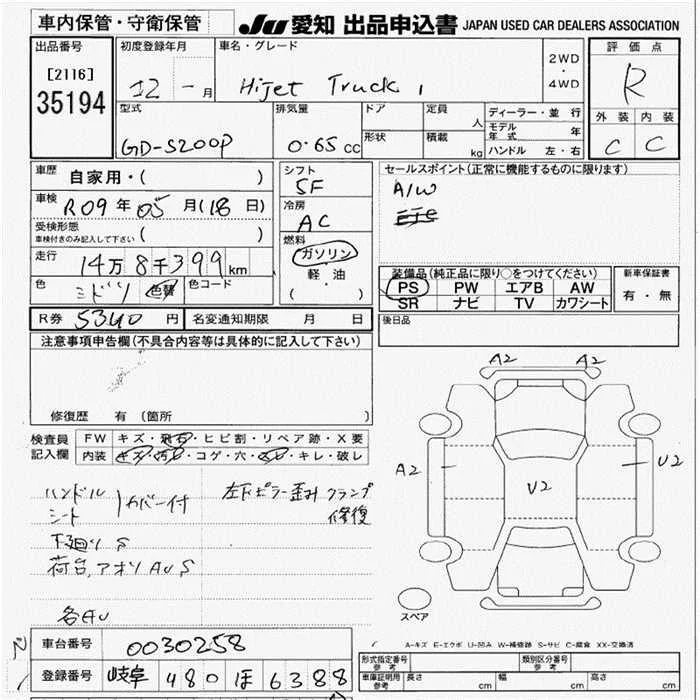 車内保管・守衛保管
JU 愛知 出品申込書 JAPAN USED CAR DEALERS ASSOCIATION
出品番号
[2116]
35194
初度登録年月
12 - 月
車名・グレード
Hijet Truck
2WD
・
4WD
評価点
R
外装 内装
C C
型式
GD-S200P
排気量
0.65 cc
ドア
形状
定員
人
積載
kg
ディーラー・並行
モデル年式 年
ハンドル 左・右
車歴 自家用・( )
車検 R09年05月(18日)
受検形態
車検付きのみ記入して下さい ( )
走行 14万8千399km
色 ミドリ 色替 色コード
シフト
5F
冷房
AC
燃料
ガソリン
軽油
( ・ )
セールスポイント(正常に機能するものに限ります)
A/W
装備品(純正品に限り○をつけてください)
PS PW エアB AW
SR ナビ TV カワシート
新車保証書
有・無
後日品
R券 5340円 名変通知期限 月 日
注意事項申告欄(不具合内容等は具体的に記入して下さい)
修復歴 有 (箇所 )
検査員記入欄
FW キズ・飛石・ヒビ割・リペア跡・X要
内装 キズ・汚レ・コゲ・穴・スレ・キレ・破レ
ハンドル
シート
カバー付
左ドピラー歪み クランプ
修復
下廻り S
荷台,アオリ AU S
各AU
A2 A2
A2
U2
U2
スペア
A-キズ E-エクボ U-凹み W-補修跡 S-サビ C-腐食 XX-交換済
車台番号 0030258
登録番号 岐阜 480 ほ 6388
形式指定番号 参考
類別区分番号 参考
車庫証明用 参考
長さ cm 幅 cm 高さ cm